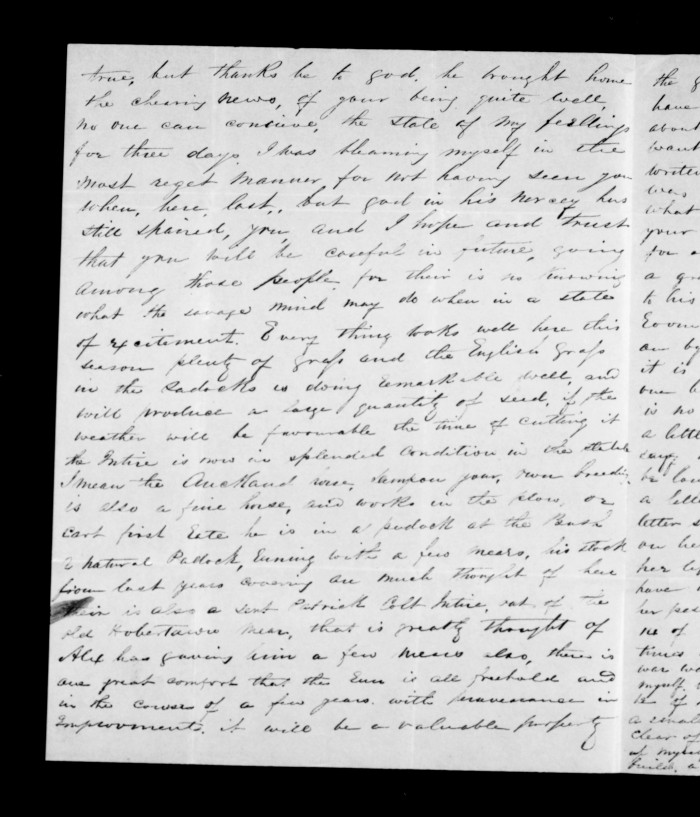 true, but thanks be to god. he brought home
the chearing news, of your being quite well,
no one can concieve, the state of my feellings
for three days, I was blaming myself in the
most reget manner, for not having seen you
when, here, last,, but god in his mercey has
still spaired, you and I hope and trust
that you will be carefull in future, going
among those people, for their is no knowing
what the savage mind may do when in a state
of excitement. Every thing looks well here this
season plenty of grass and the English Grass
in the Padocks is doing remarkable well, and
will produce a large quantity of seed, if the
weather will be favourable the time of cutting it
the Intire is now in splended condition, in the stable
I mean the Auckland horse, your, own breeding
is also a fine horse, and works in the plow, or
cart first rate he is in a padock at the Bush
a natural Paddock, running with a few mears, his stock
from last years covering are much thought of here
their is also a Sent Patrick Colt Intire, out, of the
old Hobertown Mear, that is greatly thought of
Alex has him a few Mears also, there is
one great comfort that the Run is all freehold and
in the course of a few years. with in
Improvments. it will be a valuable property
the
have
about
want
was
what
your
for
a
to his
an by
it is
one
is no
a lette
say
be
a lette
letter
on he
her
have
her
of
times
was
myself
of
a small
clear of
at mysel
build, a